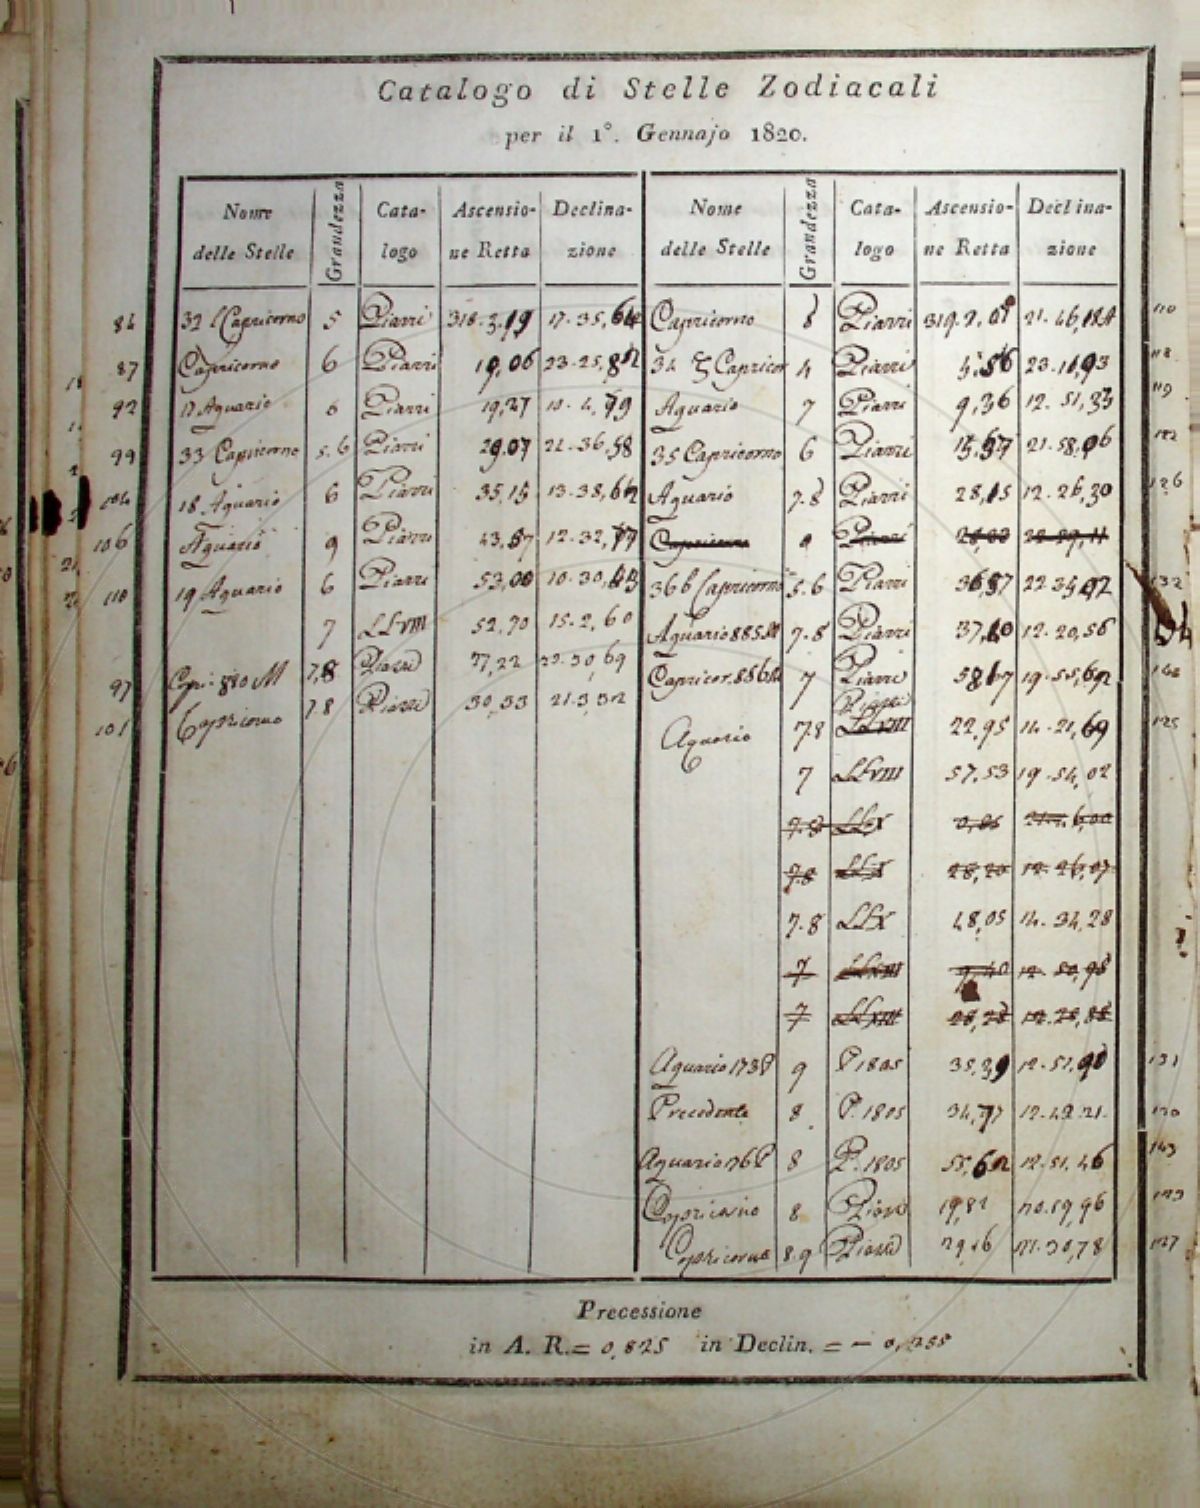 Catalogo di Stelle Zodiacali
per il 1°. Gennajo 1820.
Nome delle Stelle Grandezza Cata-logo Ascensio-ne Retta Declina-zione Nome delle Stelle Grandezza Cata-logo Ascensio-ne Retta Declina-zione
84 32 ι Capricorno 5 Piazzi 318.3,19 17.35,64 Capricorno 8 Piazzi 319.2,01 21.46,18 110
87 Capricorno 6 Piazzi 19,06 23.25,82 34 ζ Capricor 4 Piazzi 4,56 23.10,93 118
92 17 Aquario 6 Piazzi 19,27 10.4,79 Aquario 7 Piazzi 9,36 12.51,33 119
99 33 Capricorno 5.6 Piazzi 29,07 21.36,58 35 Capricorno 6 Piazzi 15,57 21.58,06 122
104 18 Aquario 6 Piazzi 35,15 13.38,62 Aquario 7.8 Piazzi 28,15 12.26,30 126
106 Aquario 9 Piazzi 43,57 12.32,77 Capricorno Piazzi 22.29,11
110 19 Aquario 6 Piazzi 53,00 10.30,43 36 b Capricorno 5.6 Piazzi 36,57 22.34,92 132
7 LLVIII 52,70 15.2,60 Aquario 885 M 7.8 Piazzi 37,10 12.20,56 134
97 Capri. 880 M 7,8 Piazzi 27,22 22.30,69 Capricor. 886 M 7 Piazzi 58,67 19.55,62 144
101 Capricorno 7.8 Piazzi 30,53 21.3,32 Aquario 7.8 Piazzi LLVIII 22,95 14.21,69 125
7 LLVIII 57,53 19.54,02
7.8 LLX 21.6,00
7.8 LLX 28,20 12.26,07
7.8 LLX 48,05 14.34,28
7 LLXIII 9,40 12.50,98
7 LLXIII 28,28 12.28,88
Aquario 173 P 9 P 1805 35,39 12.51,90 131
Precedente 8 P. 1805 34,77 12.42.21. 130
Aquario 176 P 8 P. 1805 55,62 12.51,46 143
Capricorno 8 Piazzi 19,82 20.59,96 123
Capricorno 8.9 Piazzi 29,16 21.30,78 127
Precessione
in A. R. = 0,825 in Declin. = – 0,255